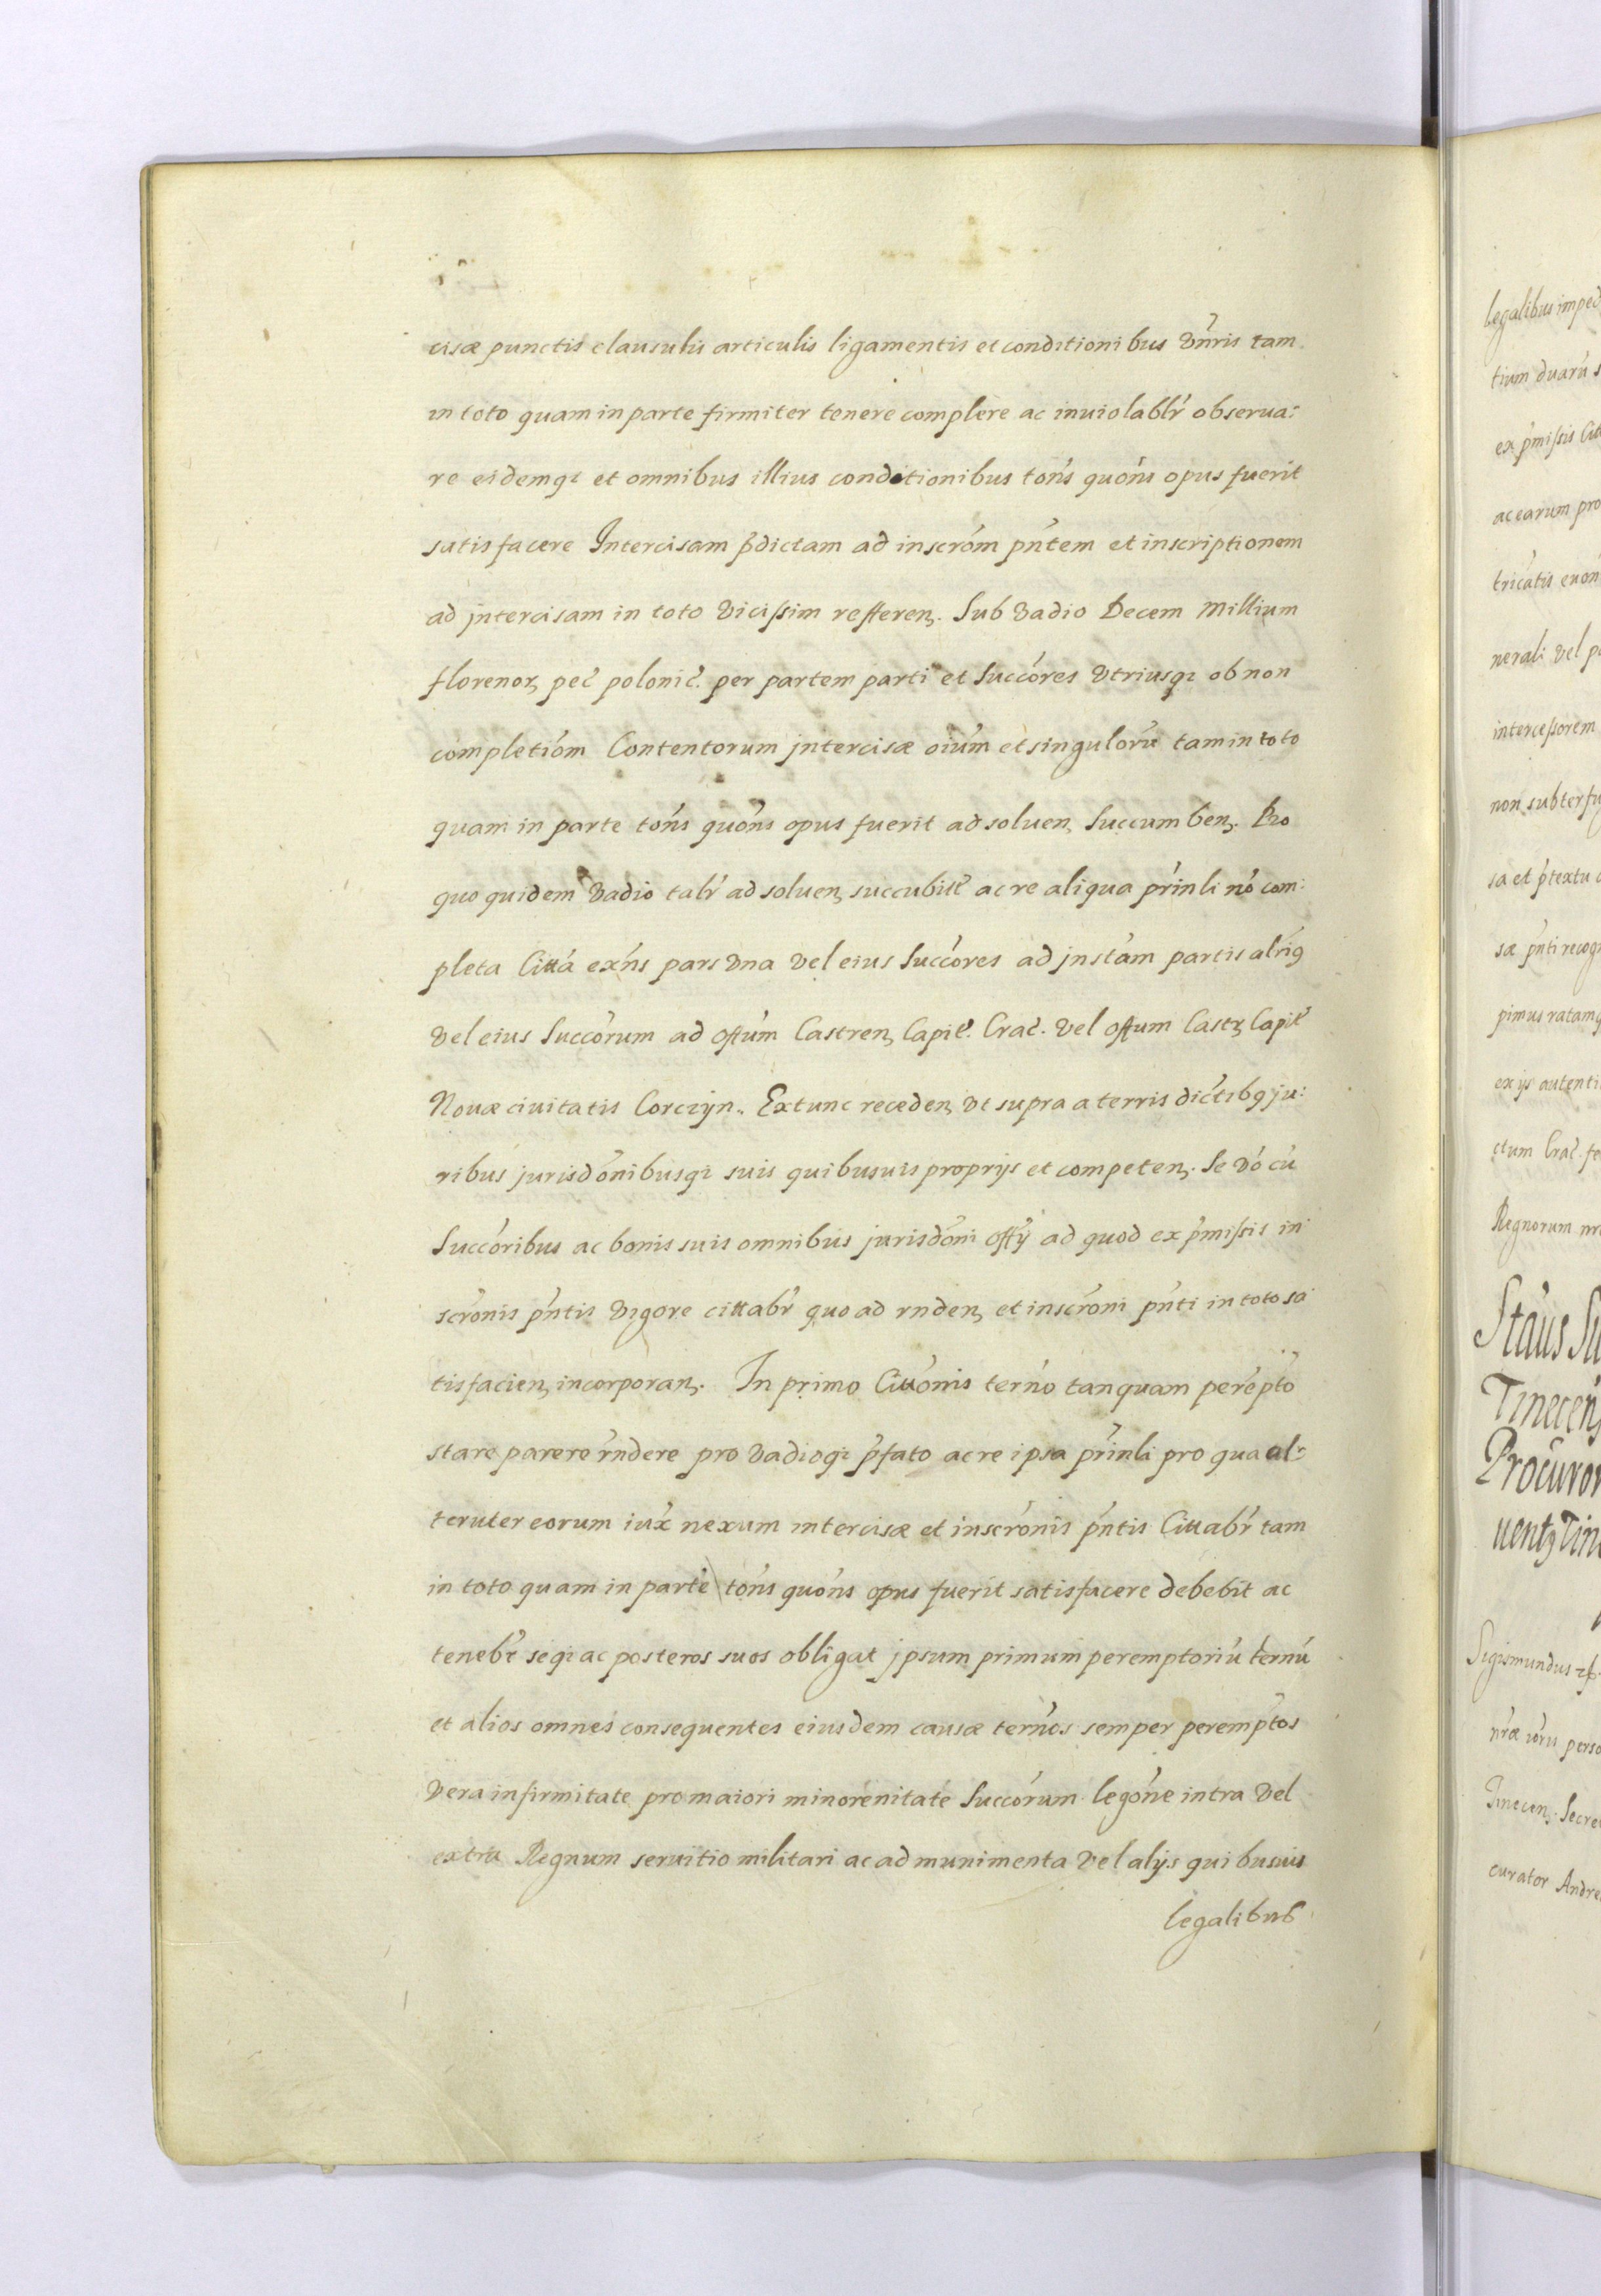 cisæ punctis clausulis articulis ligamentis et conditionibus vn̄ris tam
in toto quam in parte firmiter tenere complere ac inuiolablr̄ obserua:
re eidemqꝫ et omnibus illius conditionibus tōns quōns opus fuerit
satisfacere Intercisam p̄dictam ad inscrōm pn̄tem et inscriptionem
ad jntercisam in toto vicissim refferenꝫ. Sub vadio Decem Millium
florenorꝫ pec̄ polonic̄. per partem parti et Succōres vtriusqꝫ ob non
completiōm Contentorum jntercisæ oiūm et singulorū tam in toto
quam in parte tōns quōns opus fuerit ad soluenꝫ Succumbenꝫ. Pro
quo quidem vadio talr̄ ad soluenꝫ succubit̄ ac re aliqua prīnli nō com:
pleta Citta exn̄s pars vna vel eius Succōres ad jnstām partis altri9
vel eius Succōrum ad offūm Castrenꝫ Capit̄. Crac̄. vel offum Castrꝫ Capit̄
Nouæ ciuitatis Corczyn. Ex tunc recedenꝫ vt supra a terris dictib9 ju:
ribus jurisdōnibusqꝫ suis quibusuis proprijs et competenꝫ. Se vō cū
Succōribus ac bonis suis omnibus jurisdōni offÿ ad quod ex p̄missis in
scrōnis pn̄tis vigore cittabr̄ quo ad rndenꝫ et inscrōni pn̄ti in toto sa
tisfacienꝫ incorporanꝫ. In primo Cittōnis ternō tanquam perēpto
stare parere rn̄dere pro vadioqꝫ p̄fato ac re ipsa prīnli pro qua al:
teruter eorum iux̄ nexum intercisæ et inscrōnis pn̄tis Cittabr̄ tam
in toto quam in parte tōns quōns opus fuerit satisfacere debebit ac
tenebr̄ seqꝫ ac posteros suos obligat jpsum primum peremptoriū ternū
et alios omnes consequentes eiusdem causæ ternos semper peremptos
vera infirmitate pro maiori minorenitate Succōrum legōne intra vel
extra Regnum seruitio militari ac ad munimenta vel alijs quibusuis
legalibus
legalibus imped
tium duarū s
ex p̄missis Citt
ac earum pro
nerali vel p
intercessorem
non subterfu
sa et p̄textu
sæ pn̄ti recog
pimus ratamq
ex ijs autenti
ctum Crac̄. fe
Regnorum nr
Stāus Su
Tinecenꝫ
Procuror
uentꝫ Tin
Sigismundus
nræ pers
Tinecenꝫ. Secre
curator Andre